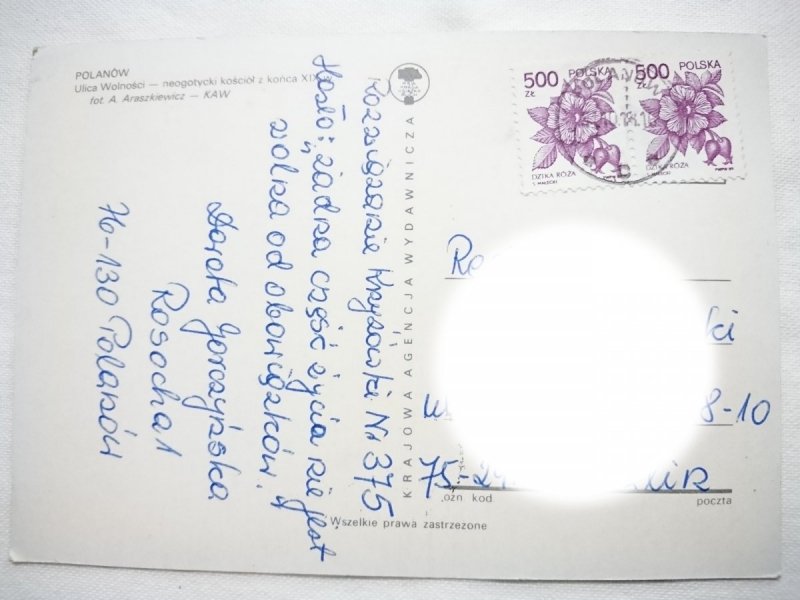 POLANÓW
Ulica Wolności — neogotycki kościół z końca XIX
fot. A. Araszkiewicz — KAW
Rozwiązanie Krzyżówki Nr 375
Hasło: „żadna część życia nie jest
wolna od obowiązków."
Dorota Gorczyńska
Rosocha 1
76-130 Polanów
KRAJOWA AGENCJA WYDAWNICZA
500 ZŁ POLSKA
DZIKA RÓŻA
500 ZŁ POLSKA
DZIKA RÓŻA
ski
8-10
75-2
poczta
Wszelkie prawa zastrzeżone